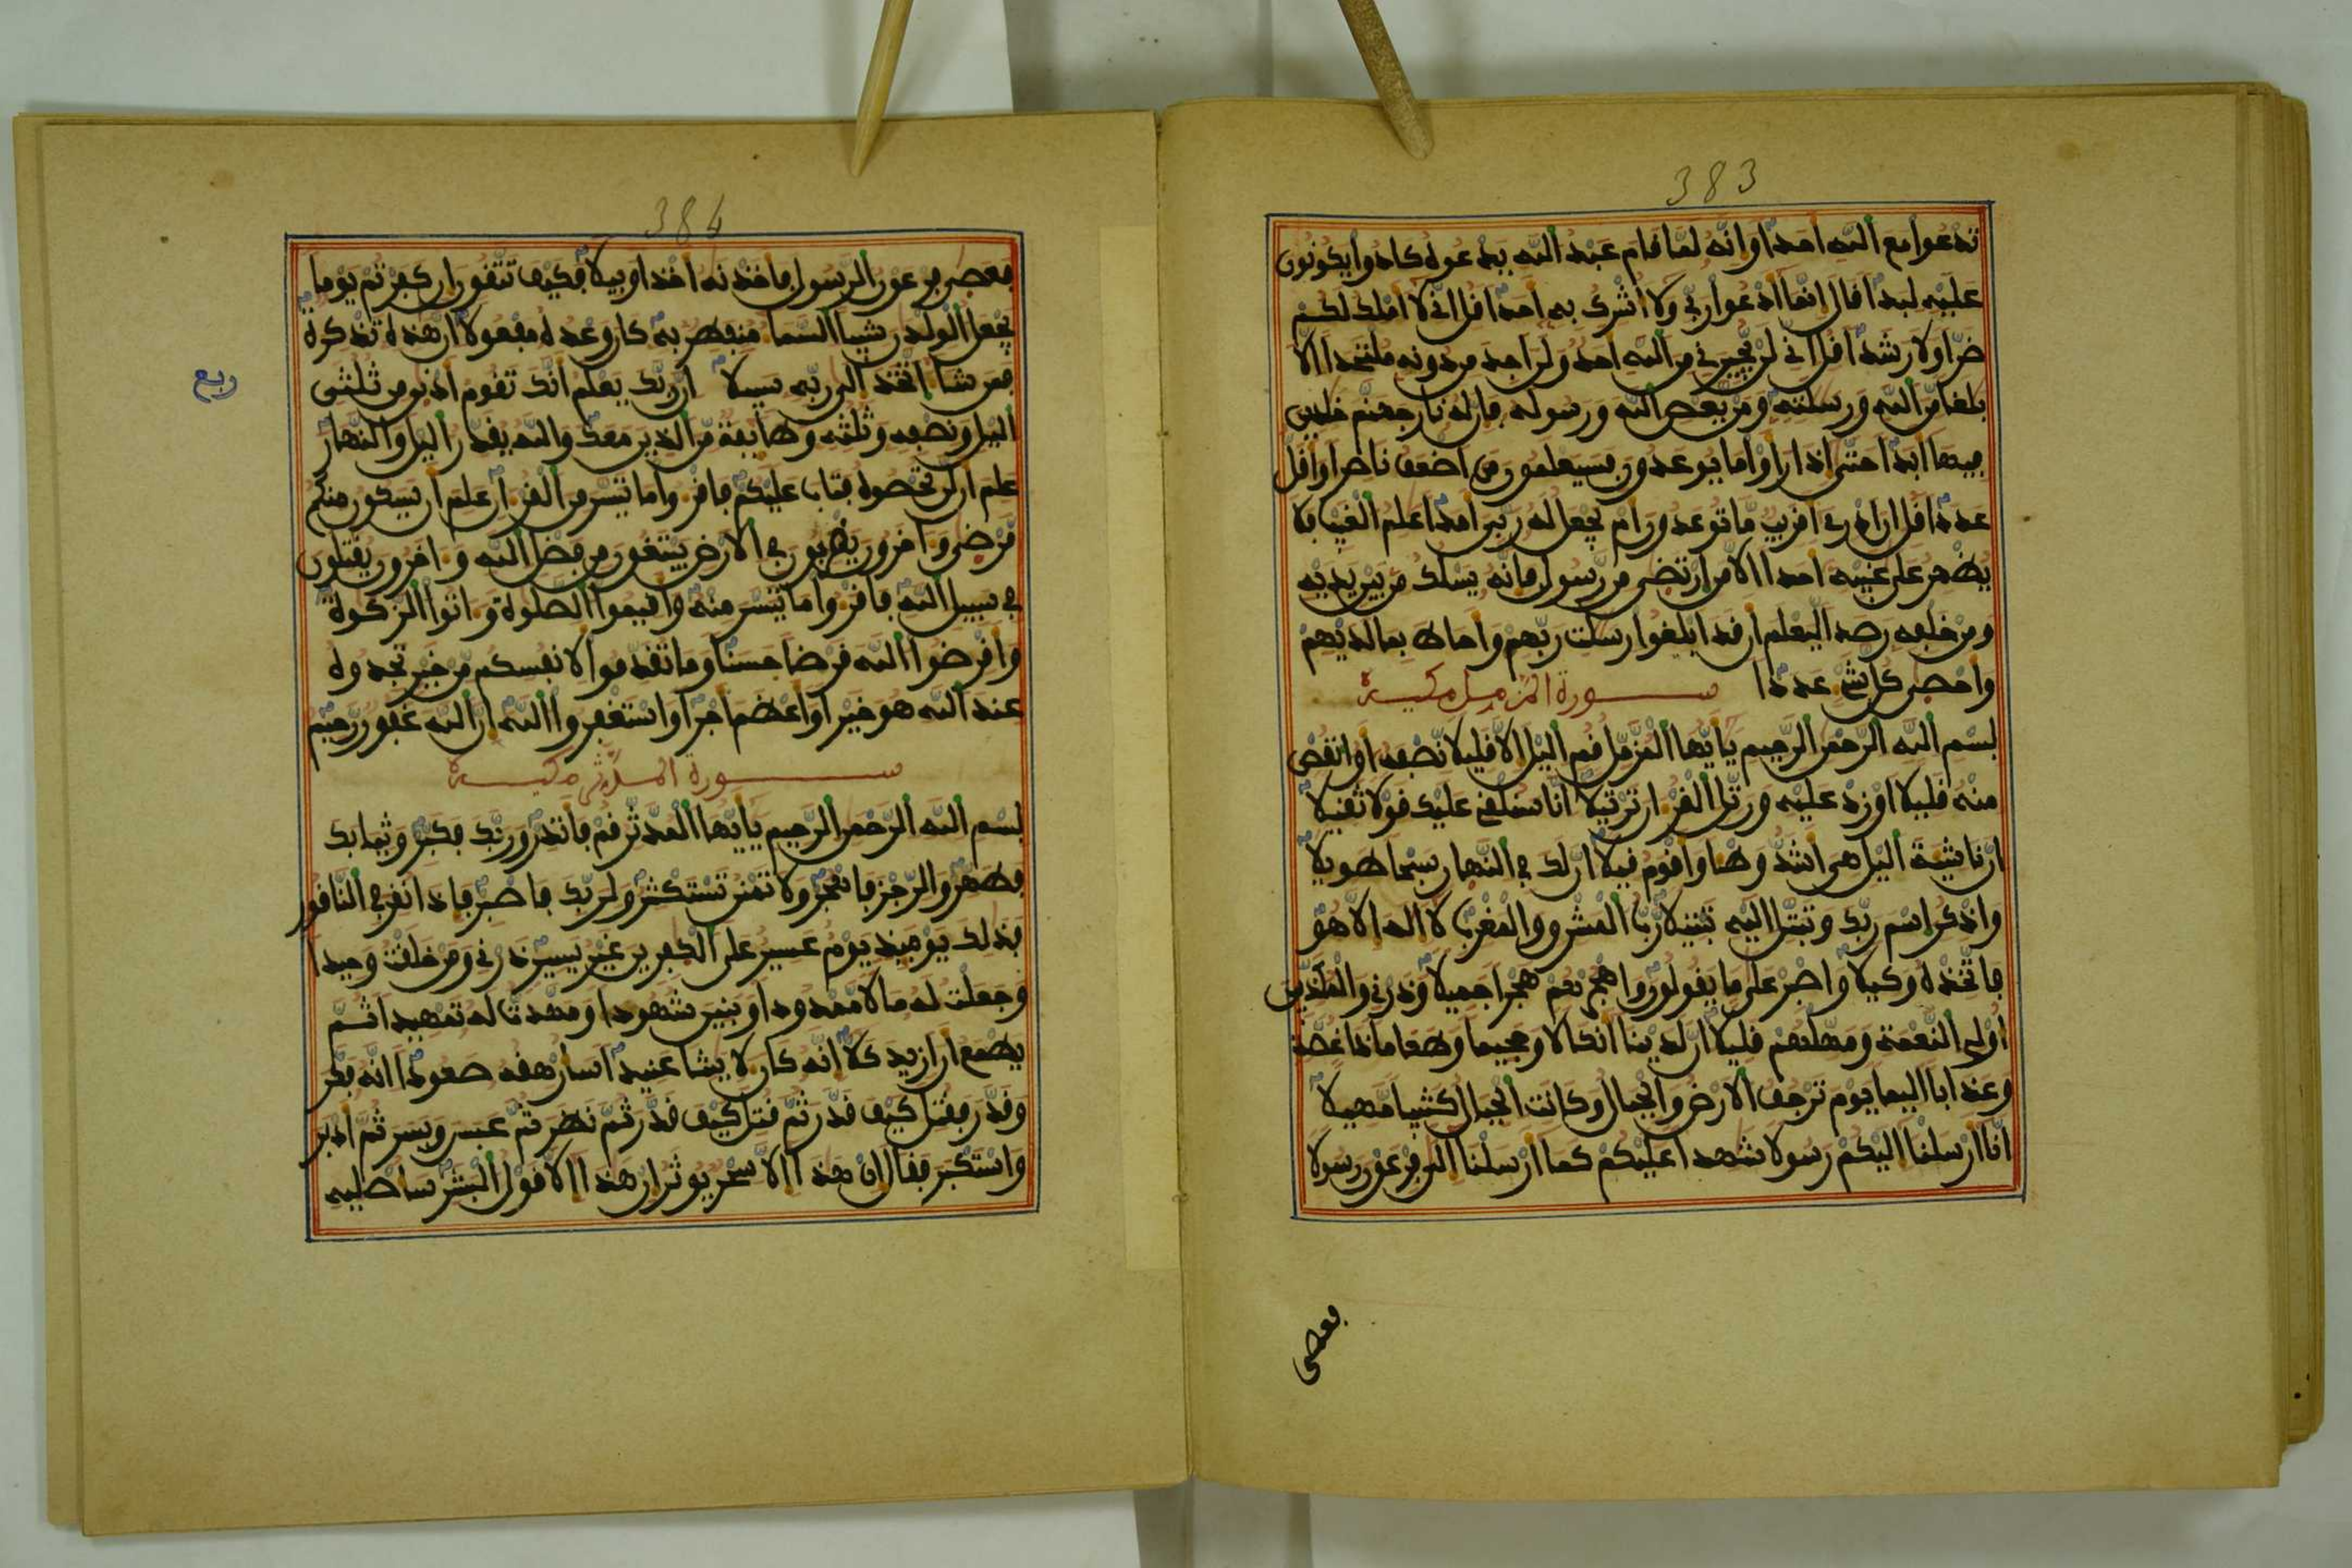 383
تدعوا مع الله احدا وانه لما قام عبد الله يدعوه كادوا يكونون
عليه لبدا قال انما ادعوا ربي ولا اشرك به احدا قل اني لا املك لكم
ضرا ولا رشدا قل اني لن يجيرني من الله احد ولن اجد من دونه ملتحدا الا
بلغا من الله ورسلته ومن يعص الله ورسوله فان له نار جهنم خلدين
فيها ابدا حتى اذا راوا ما يوعدون فسيعلمون من اضعف ناصرا واقل
عددا قل ان ادرى اقريب ما توعدون ام يجعل له ربي امدا علم الغيب فلا
يظهر على غيبه احدا الا من ارتضى من رسول فانه يسلك من بين يديه
ومن خلفه رصدا ليعلم ان قد ابلغوا رسلت ربهم واحاط بما لديهم
واحصى كل شئ عددا سورة المزمل مكية
بسم الله الرحمن الرحيم يايها المزمل قم اليل الا قليلا نصفه او انقص
منه قليلا او زد عليه ورتل القران ترتيلا انا سنلقي عليك قولا ثقيلا
ان ناشئة اليل هي اشد وطا واقوم قيلا ان لك في النهار سبحا طويلا
واذكر اسم ربك وتبتل اليه تبتيلا رب المشرق والمغرب لا اله الا هو
فاتخذه وكيلا واصبر على ما يقولون واهجرهم هجرا جميلا وذرني والمكذبين
اولي النعمة ومهلهم قليلا ان لدينا انكالا وجحيما وطعاما ذا غصة
وعذابا اليما يوم ترجف الارض والجبال وكانت الجبال كثيبا مهيلا
انا ارسلنا اليكم رسولا شهدا عليكم كما ارسلنا الى فرعون رسولا
فعصى
384
فعصى فرعون الرسول فاخذنه اخذا وبيلا فكيف تتقون ان كفرتم يوما
يجعل الولدن شيبا السما منفطر به كان وعده مفعولا ان هذه تذكرة
فمن شا اتخذ الى ربه سبيلا ان ربك يعلم انك تقوم ادنى من ثلثي
اليل ونصفه وثلثه وطايفة من الذين معك والله يقدر اليل والنهار
علم ان لن تحصوه فتاب عليكم فاقروا ما تيسر من القران علم ان سيكون منكم
مرضى واخرون يضربون في الارض يبتغون من فضل الله واخرون يقتلون
في سبيل الله فاقروا ما تيسر منه واقيموا الصلوة واتوا الزكوة
واقرضوا الله قرضا حسنا وما تقدموا لانفسكم من خير تجدوه
عند الله هو خيرا واعظم اجرا واستغفروا الله ان الله غفور رحيم
سورة المدثر مكية
بسم الله الرحمن الرحيم يايها المدثر قم فانذر وربك فكبر وثيابك
فطهر والرجز فاهجر ولا تمنن تستكثر ولربك فاصبر فاذا نقر في الناقور
فذلك يومئذ يوم عسير على الكفرين غير يسير ذرني ومن خلقت وحيدا
وجعلت له مالا ممدودا وبنين شهودا ومهدت له تمهيدا ثم
يطمع ان ازيد كلا انه كان لايتنا عنيدا سارهقه صعودا انه فكر
وقدر فقتل كيف قدر ثم قتل كيف قدر ثم نظر ثم عبس وبسر ثم ادبر
واستكبر فقال ان هذا الا سحر يوثر ان هذا الا قول البشر ساصليه
ربع